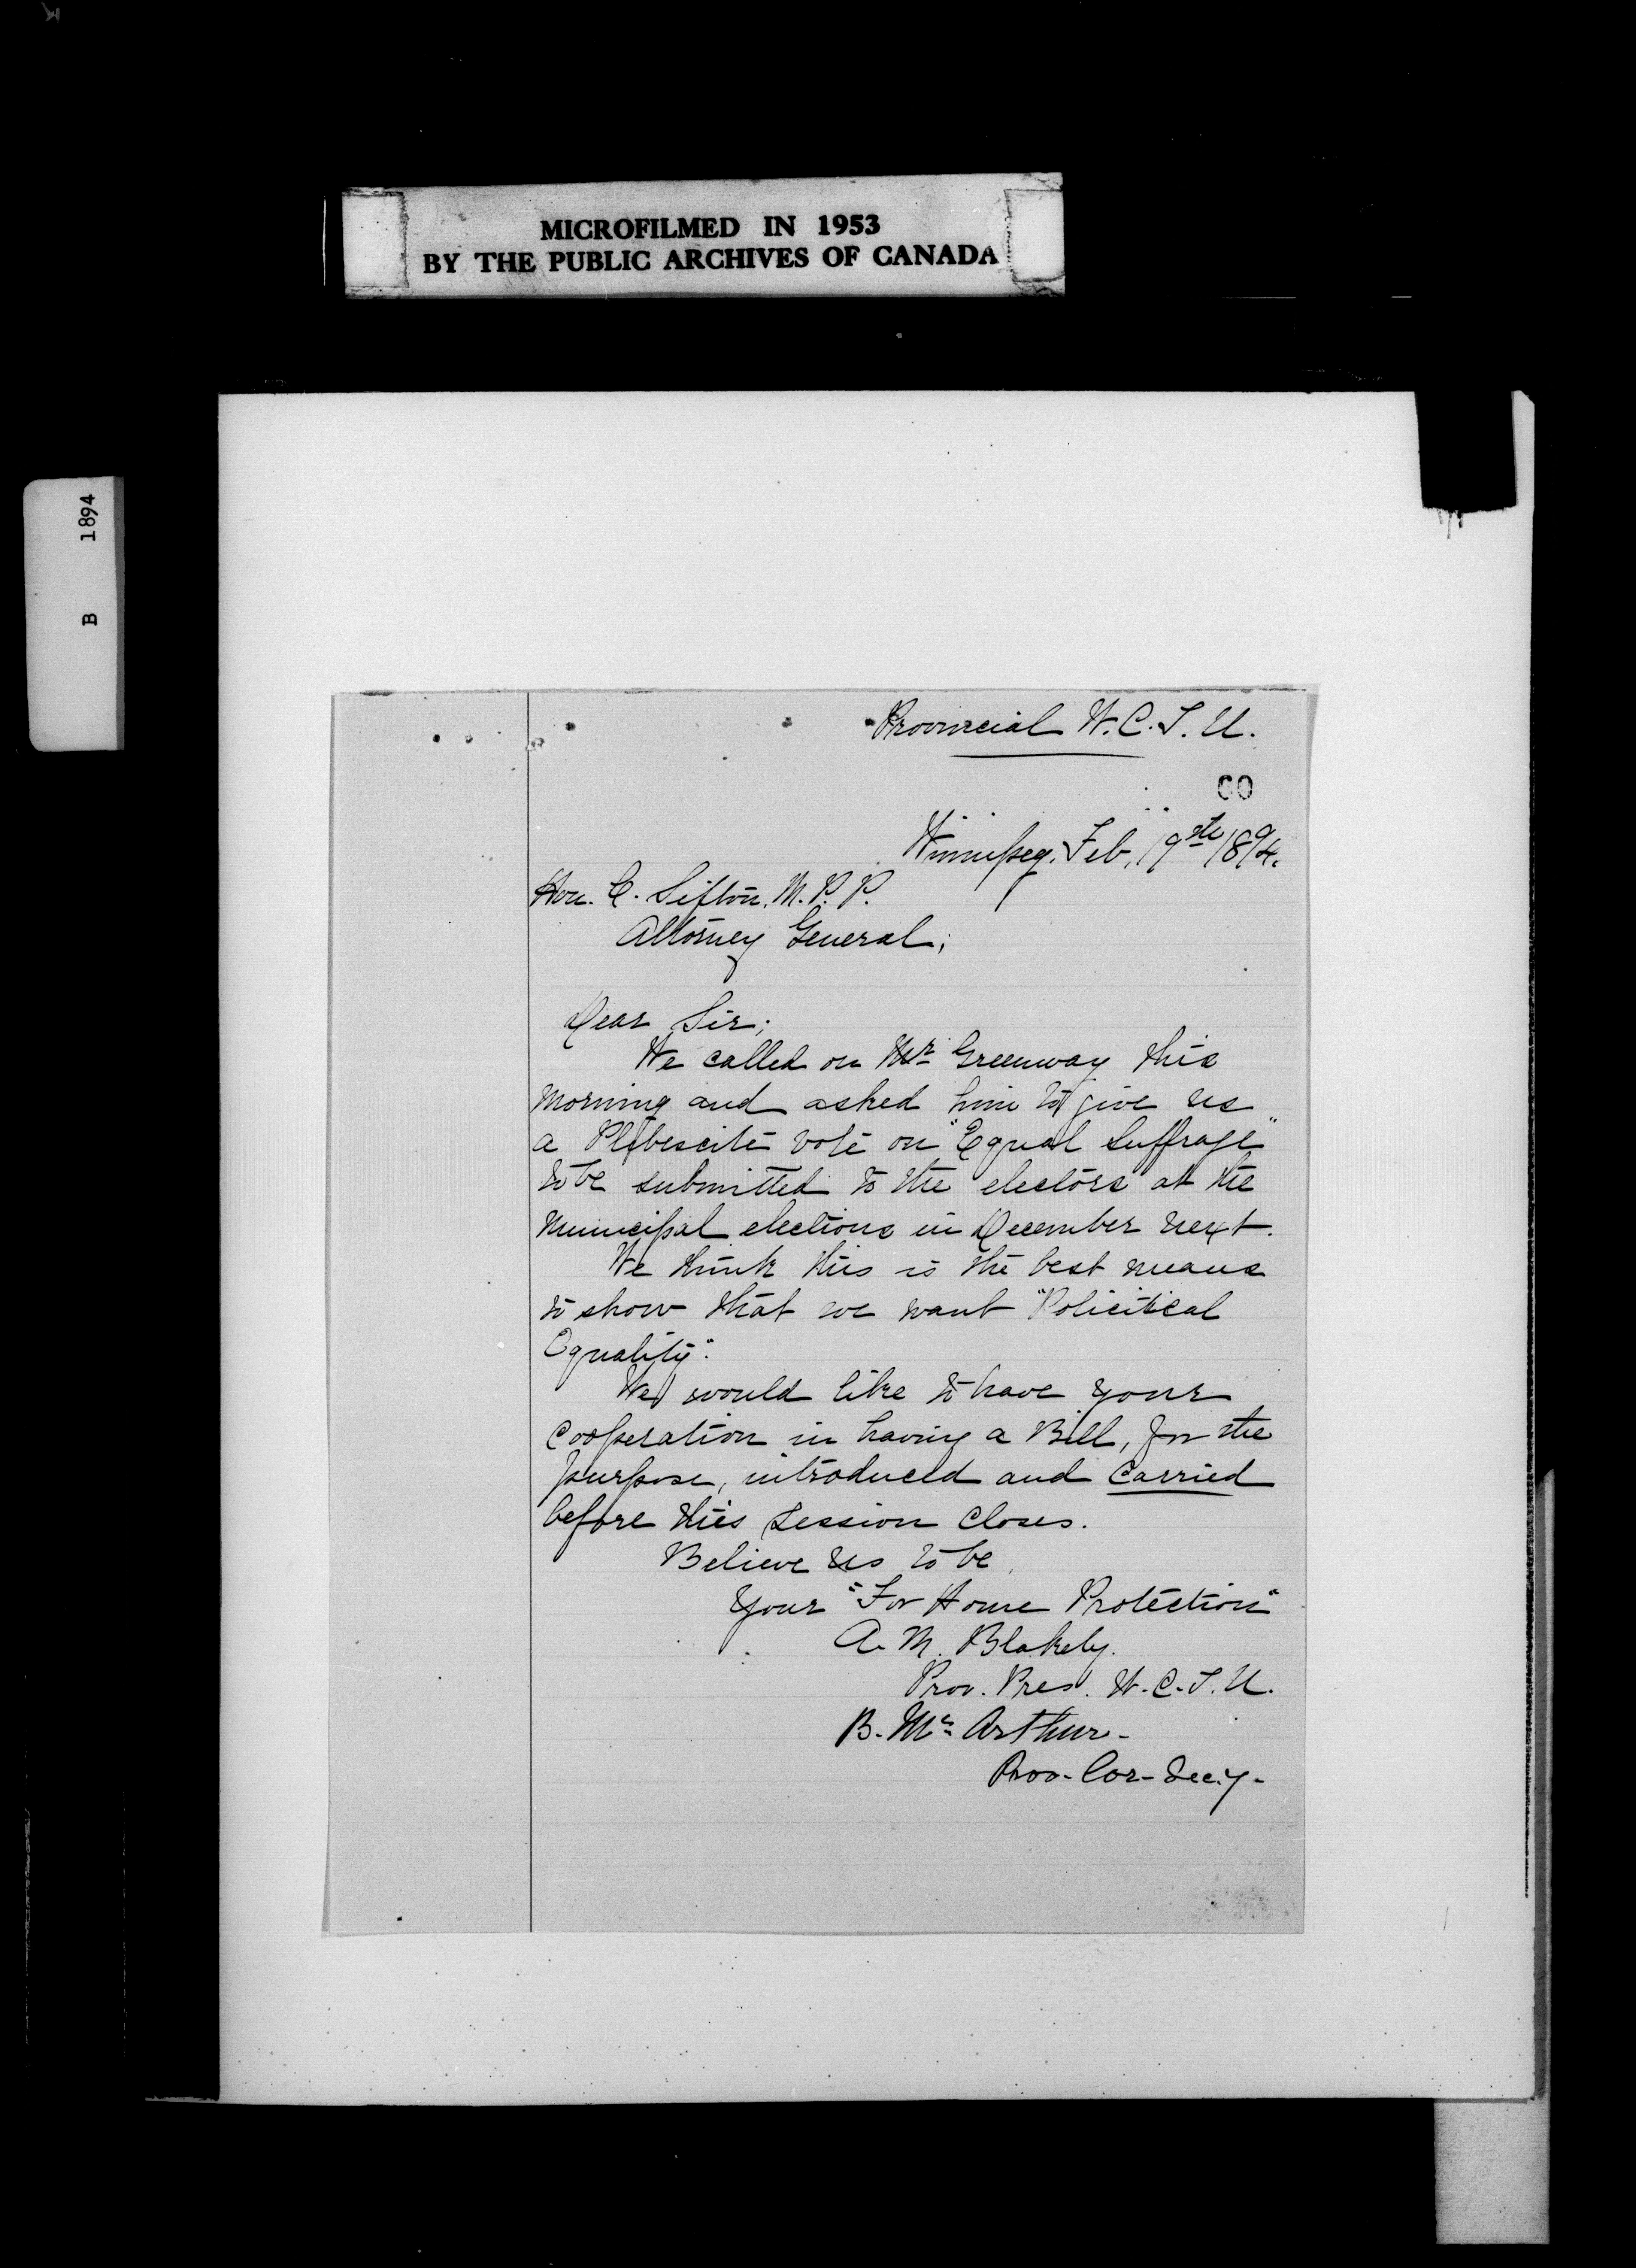 MICROFILMED IN 1953
BY THE PUBLIC ARCHIVES OF CANADA
B 1894
Provincial W.C.T.U.
60
Winnipeg, Feb, 19th 1894.
Hon. C. Sifton, M.P.P.
Attorney General;
Dear Sir;
We called on Mr Greenway this
morning and asked him to give us
a Plebescite vote on "Equal Suffrage"
to be submitted to the electors at the
Municipal elections in December next.
We think this is the best means
to show that we want "Policitical
Equality".
We would like to have your
cooperation in having a Bill, for the
purpose, introduced and carried
before this session closes.
Believe us to be,
Your "For Home Protection"
A. M. Blakely.
Prov. Pres. W.C.T.U.
B. Mc Arthur-
Prov- Cor- Sec.y-